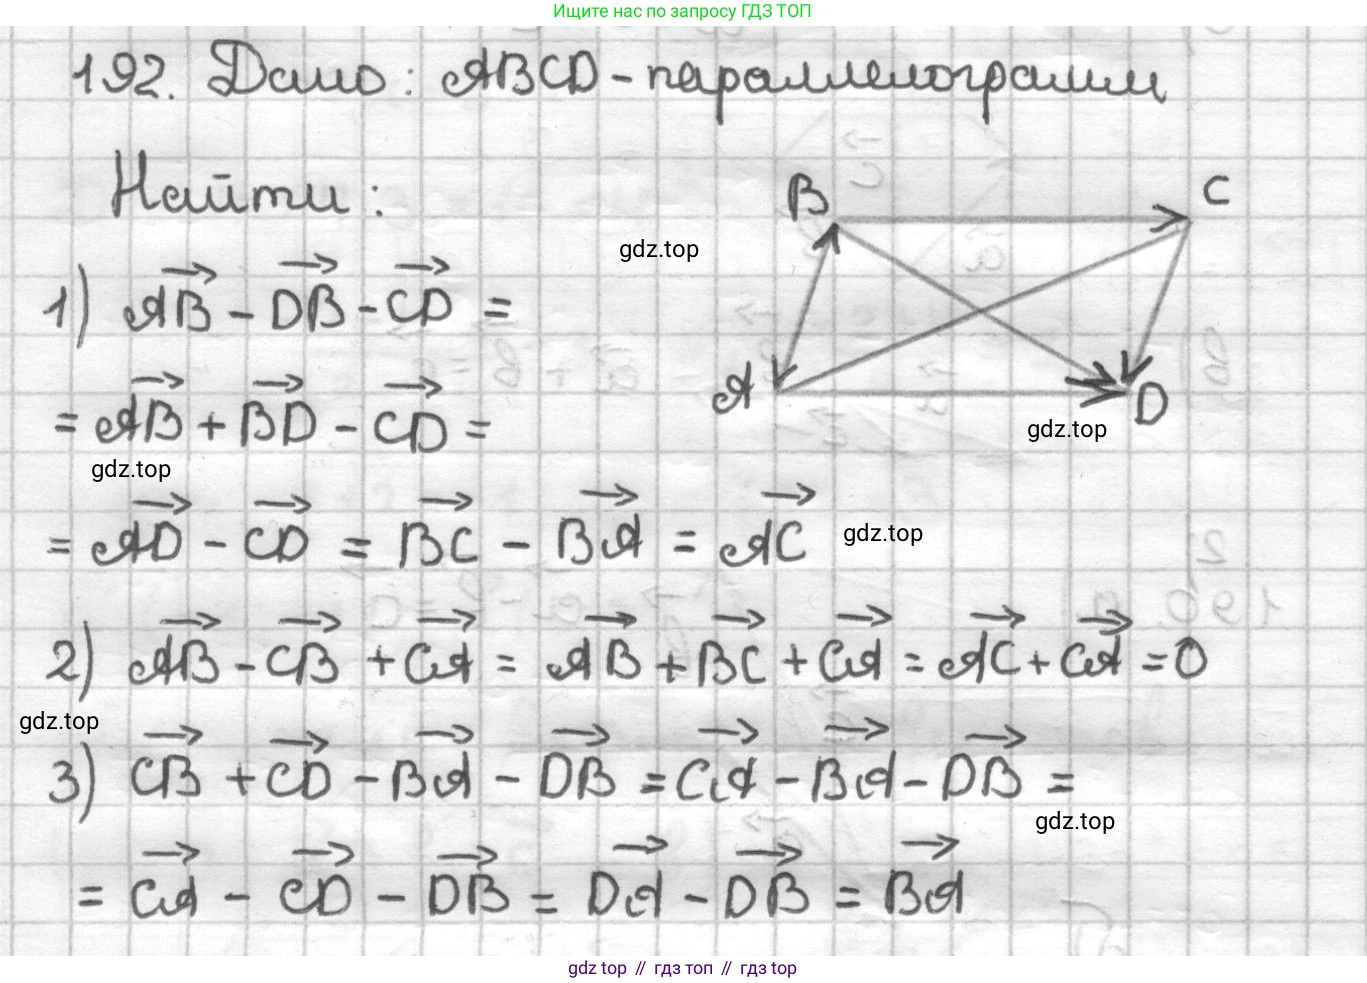 Ищите нас по запросу ГДЗ ТОП
192. Дано: ABCD - параллелограмм
Найти:
B
C
gdz.top
1) AB→ - DB→ - CD→ =
A
D
gdz.top
= AB→ + BD→ - CD→ =
gdz.top
= AD→ - CD→ = BC→ - BA→ = AC→
gdz.top
2) AB→ - CB→ + CA→ = AB→ + BC→ + CA→ = AC→ + CA→ = 0
gdz.top
3) CB→ + CD→ - BA→ - DB→ = CA→ - BA→ - DB→ =
gdz.top
= CA→ - CD→ - DB→ = DA→ - DB→ = BA→
gdz top // гдз топ // gdz top